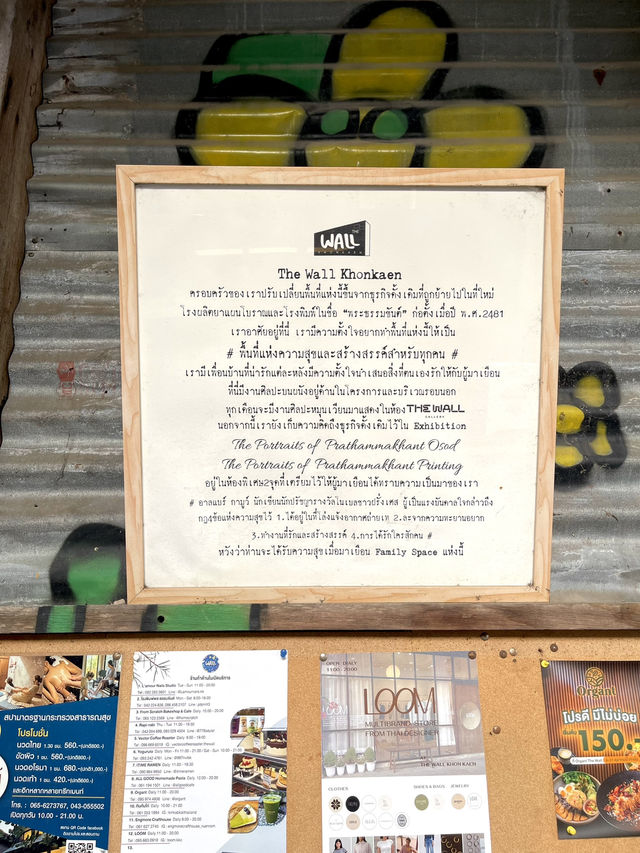 THE WALL
KHONKAEN
The Wall Khonkaen
ครอบครัวของเราปรับเปลี่ยนพื้นที่แห่งนี้ขึ้นจากธุรกิจดั้งเดิมที่ถูกย้ายไปในที่ใหม่
โรงผลิตยาแผนโบราณและโรงพิมพ์ในชื่อ "พระธรรมขันต์" ก่อตั้งเมื่อปี พ.ศ.2481
เราอาศัยอยู่ที่นี่ เรามีความตั้งใจอยากทำพื้นที่แห่งนี้ให้เป็น
# พื้นที่แห่งความสุขและสร้างสรรค์สำหรับทุกคน #
เรามีเพื่อนบ้านที่น่ารักแต่ละหลังมีความตั้งใจนำเสนอสิ่งที่ตนเองรักให้กับผู้มาเยือน
ที่นี่มีงานศิลปะบนผนังอยู่ด้านในโครงการและบริเวณรอบนอก
ทุกเดือนจะมีงานศิลปะหมุนเวียนมาแสดงในห้อง THE WALL GALLERY
นอกจากนี้เรายังเก็บความคิดถึงธุรกิจดั้งเดิมไว้ใน Exhibition
The Portraits of Prathammakhant Osod
The Portraits of Prathammakhant Printing
อยู่ในห้องพิเศษ2จุดที่เตรียมไว้ให้ผู้มาเยือนได้ทราบความเป็นมาของเรา
# อาลแบร์ กามูว์ นักเขียนนักปรัชญารางวัลโนเบลชาวฝรั่งเศส ผู้เป็นแรงบันดาลใจกล่าวถึง
กฎ4ข้อแห่งความสุขไว้ 1.ได้อยู่ในที่โล่งแจ้งอากาศถ่ายเท 2.ละจากความทะยานอยาก
3.ทำงานที่รักและสร้างสรรค์ 4.การได้รักใครสักคน #
หวังว่าท่านจะได้รับความสุขเมื่อมาเยือน Family Space แห่งนี้
สปามาตรฐานกระทรวงสาธารณสุข
โปรโมชั่น
นวดไทย 1.30 ชม. 560.-
ขัดผิว 1 ชม. 560.-
นวดออโร่มา 1 ชม. 680.-
นวดเท้า 1 ชม. 420.-
และอีกหลากหลายทรีทเมนท์
โทร : 065-6273767, 043-055502
เปิดทุกวัน 10.00 - 21.00 น.
WALL
3. From Scratch Bakeshop & Cafe Daily 10:00 - 20:00
5. Vector Coffee Roaster Daily 9:00 - 20:00
7. ITIME RAMEN Daily 11:00 - 19:30
8. ALL GOOD Homemade Pasta Daily 12:00 - 20:00
9. Organt Daily 11:00 - 20:00
12. LOOM Daily 11:00 - 20:00
13.
OPEN DAILY
11:00 - 20:00
LOOM
MULTIBRAND STORE
FROM THAI DESIGNER
THE WALL KHON KAEN
CLOTHES
SHOES & BAGS
JEWELRY
Organt
โปรดี มีไม่บอย
150.-